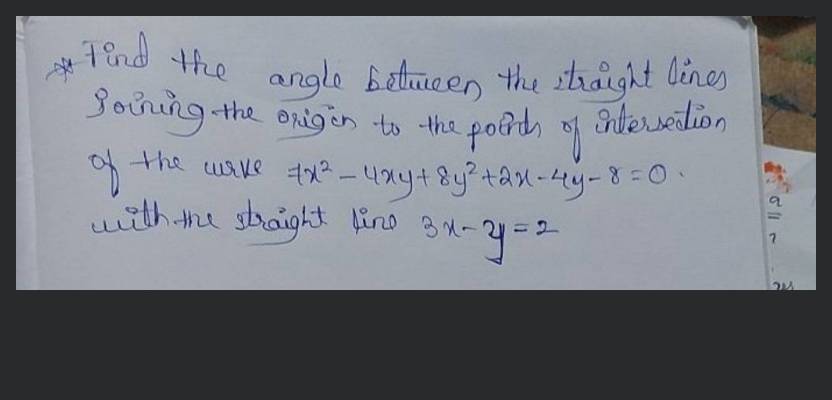 * Find the angle between the straight lines
Joining the origin to the points of intersection
of the curve 7x² - 4xy + 8y² + 2x - 4y - 8 = 0.
with the straight line 3x - 2y = 2
a
=
?